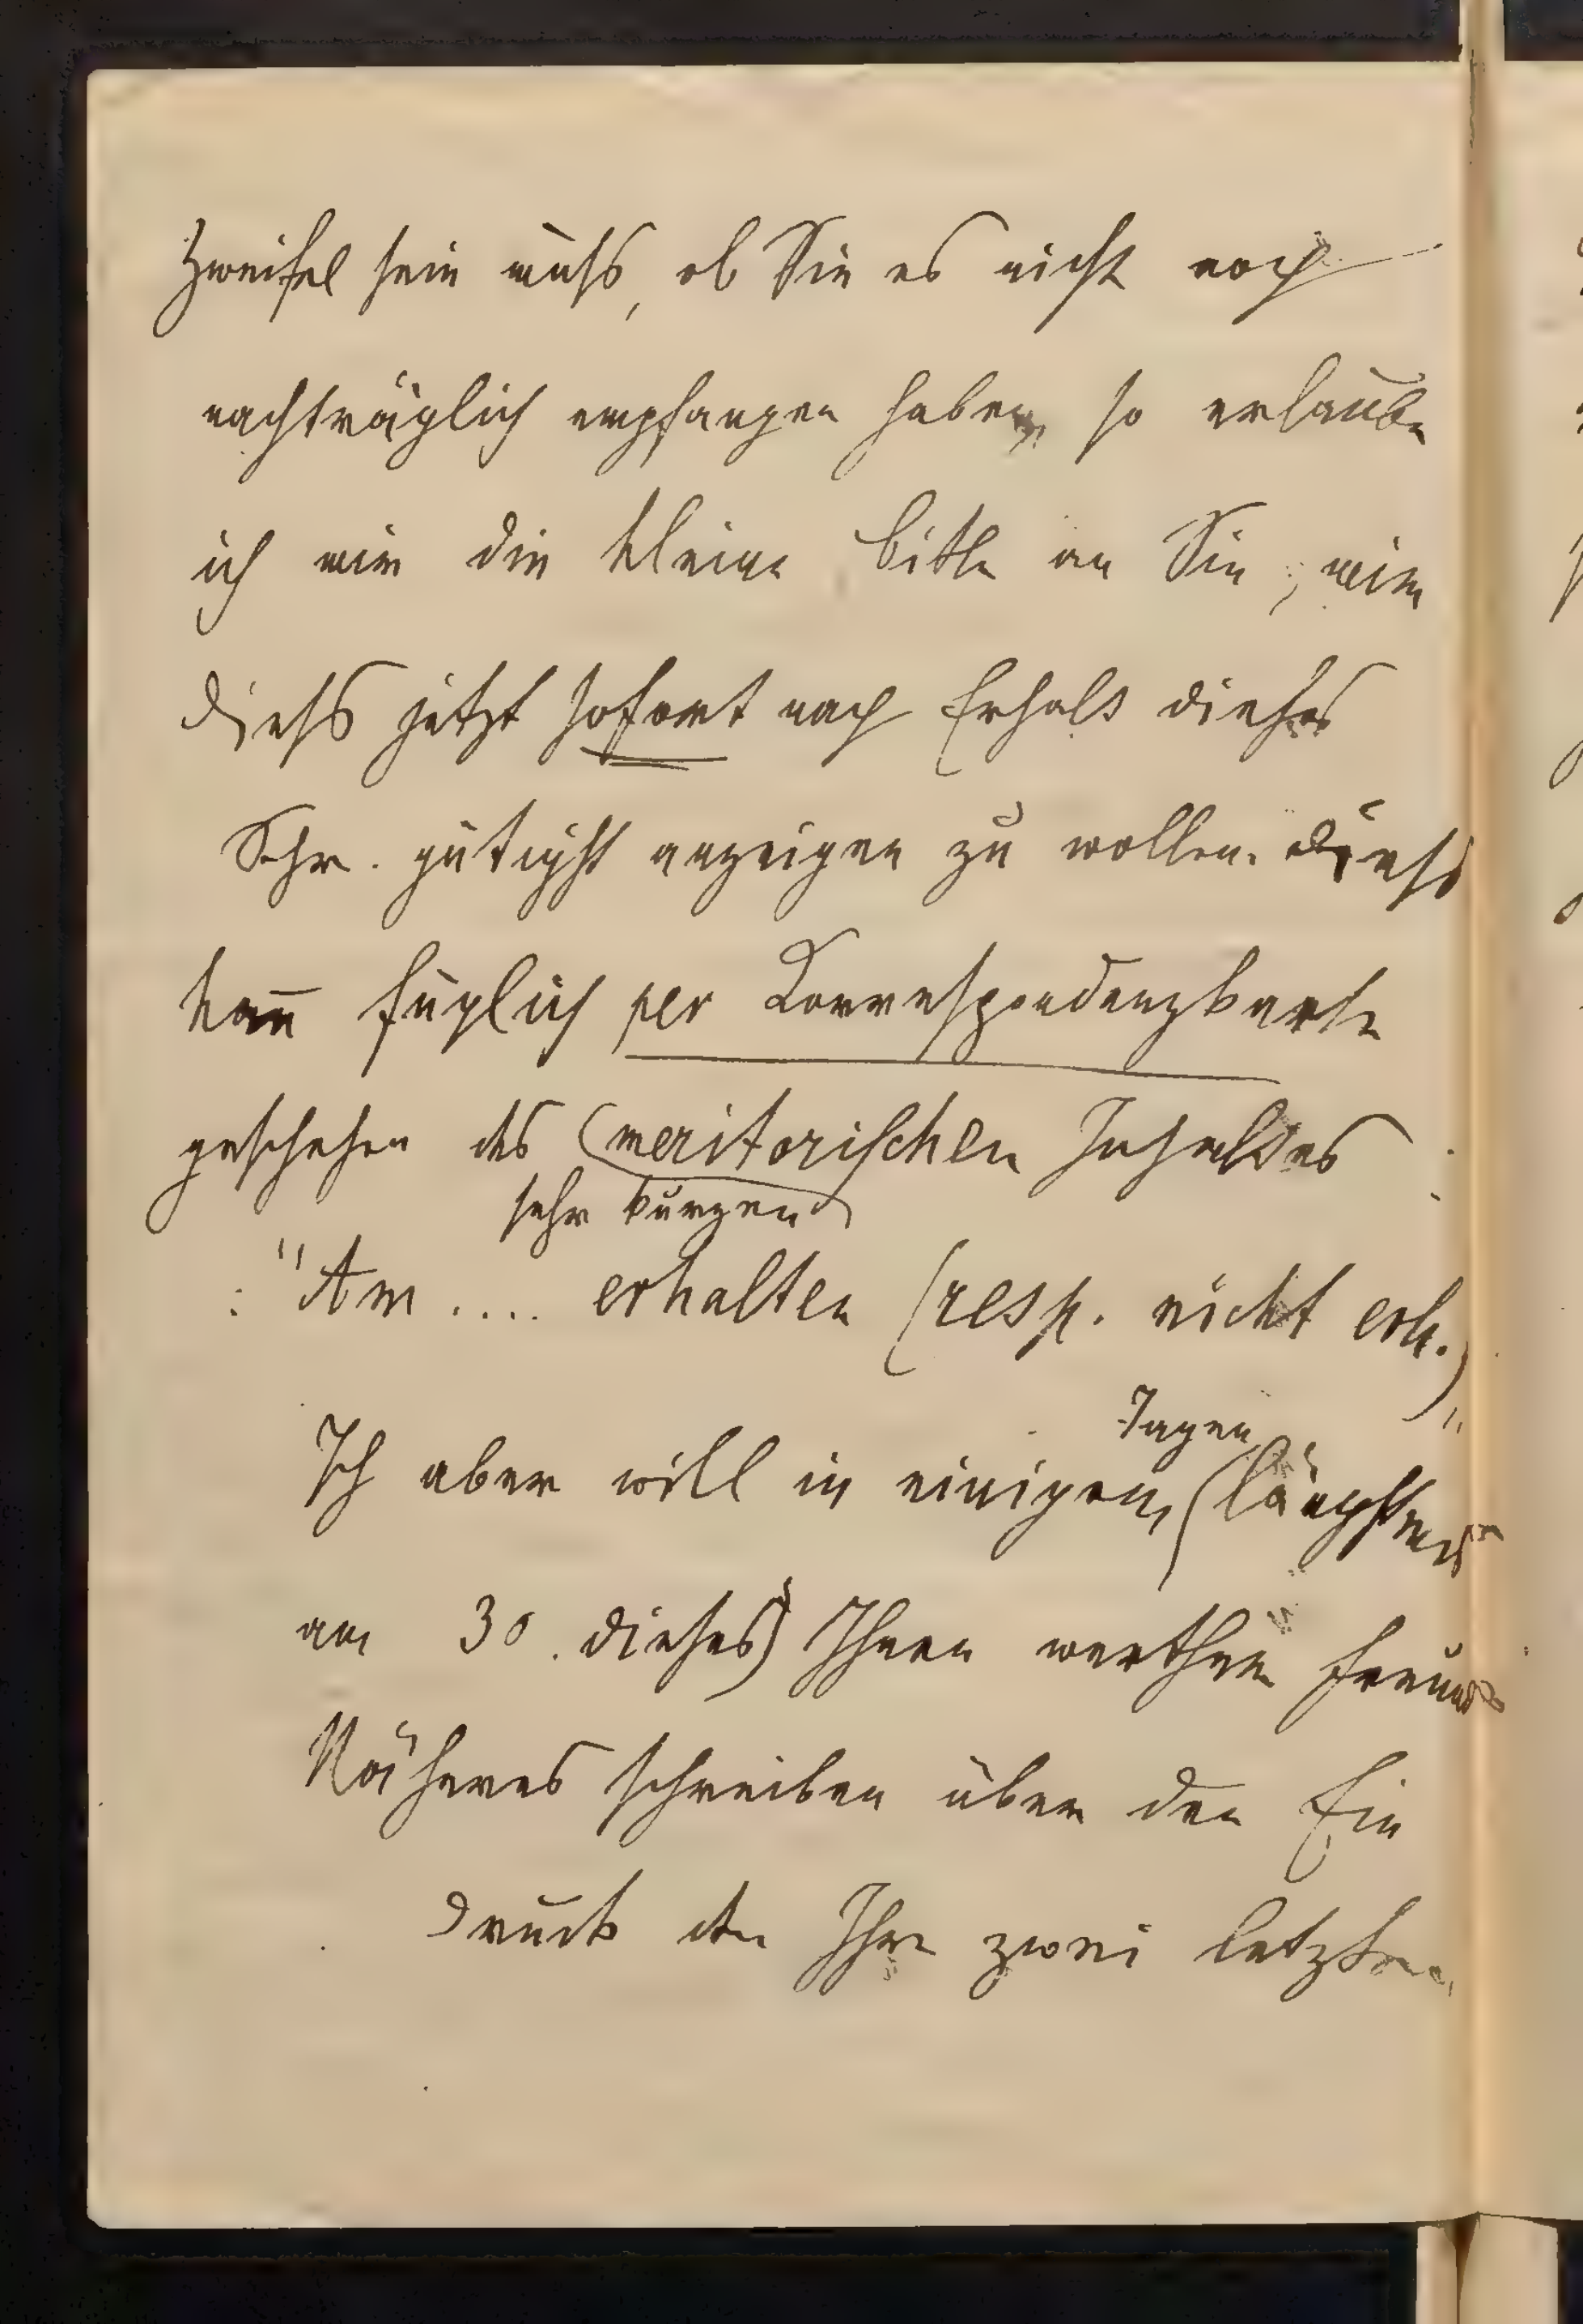 Zweifel sein muss, ob Sie es nicht noch
nachträglich empfangen haben, so erlaube
ich mir die kleine Bitte an Sie, mir
diess jetzt sofort nach Erhalt dieses
Schr. gütigst anzeigen zu wollen. Diess
kann füglich per Correspondenzkarte
geschehen des (meritorischen Inhaltes
sehr kurzen)
: "Am .... erhalten (resp. nicht erh.)"
Tagen
Ich aber will in einigen, (längstens
am 30. dieses) Ihnen werthem Freunde
Näheres schreiben über den Ein
druck den Ihre zwei letzten